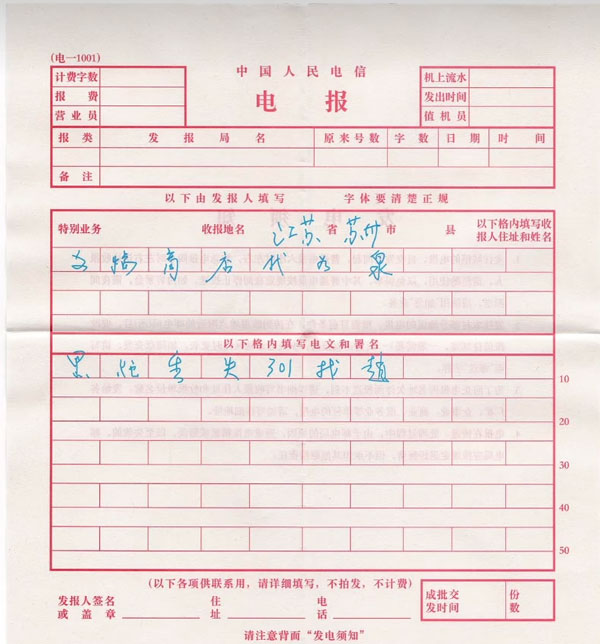 (电一1001)
计费字数
报费
营业员
中国人民电信
电报
机上流水
发出时间
值机员
报类 发报局名 原来号数 字数 日期 时间
备注
以下由发报人填写 字体要清楚正规
特别业务 收报地名 江苏省 苏州市 县 以下格内填写收报人住址和姓名
文物商店 泉
以下格内填写电文和署名
黑 301找赵
10
20
30
40
50
(以下各项供联系用,请详细填写,不拍发,不计费)
发报人签名或盖章 住址 电话 成批交发时间 份数
请注意背面“发电须知”